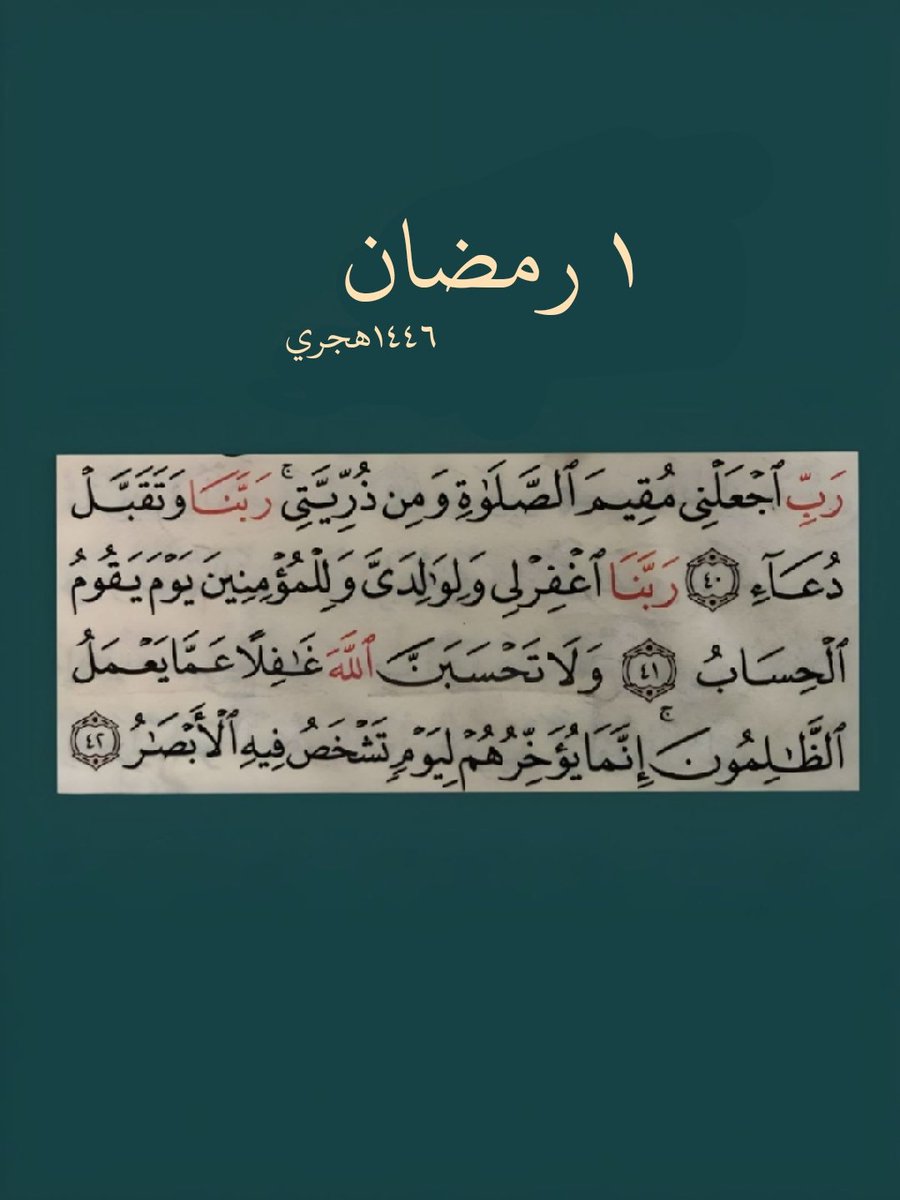 ١ رمضان
١٤٤٦هجري
رَبِّ ٱجْعَلْنِى مُقِيمَ ٱلصَّلَوٰةِ وَمِن ذُرِّيَّتِى ۚ رَبَّنَا وَتَقَبَّلْ
دُعَآءِ ٤٠ رَبَّنَا ٱغْفِرْ لِى وَلِوَٰلِدَىَّ وَلِلْمُؤْمِنِينَ يَوْمَ يَقُومُ
ٱلْحِسَابُ ٤١ وَلَا تَحْسَبَنَّ ٱللَّهَ غَٰفِلًا عَمَّا يَعْمَلُ
ٱلظَّٰلِمُونَ ۚ إِنَّمَا يُؤَخِّرُهُمْ لِيَوْمٍ تَشْخَصُ فِيهِ ٱلْأَبْصَٰرُ ٤٢